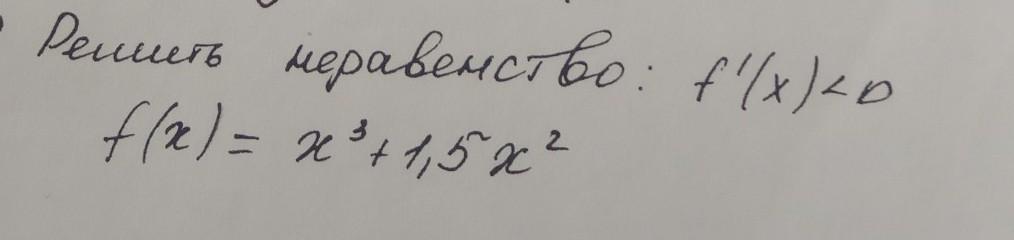 Решить неравенство: f'(x)<0
f(x) = x³+1,5x²